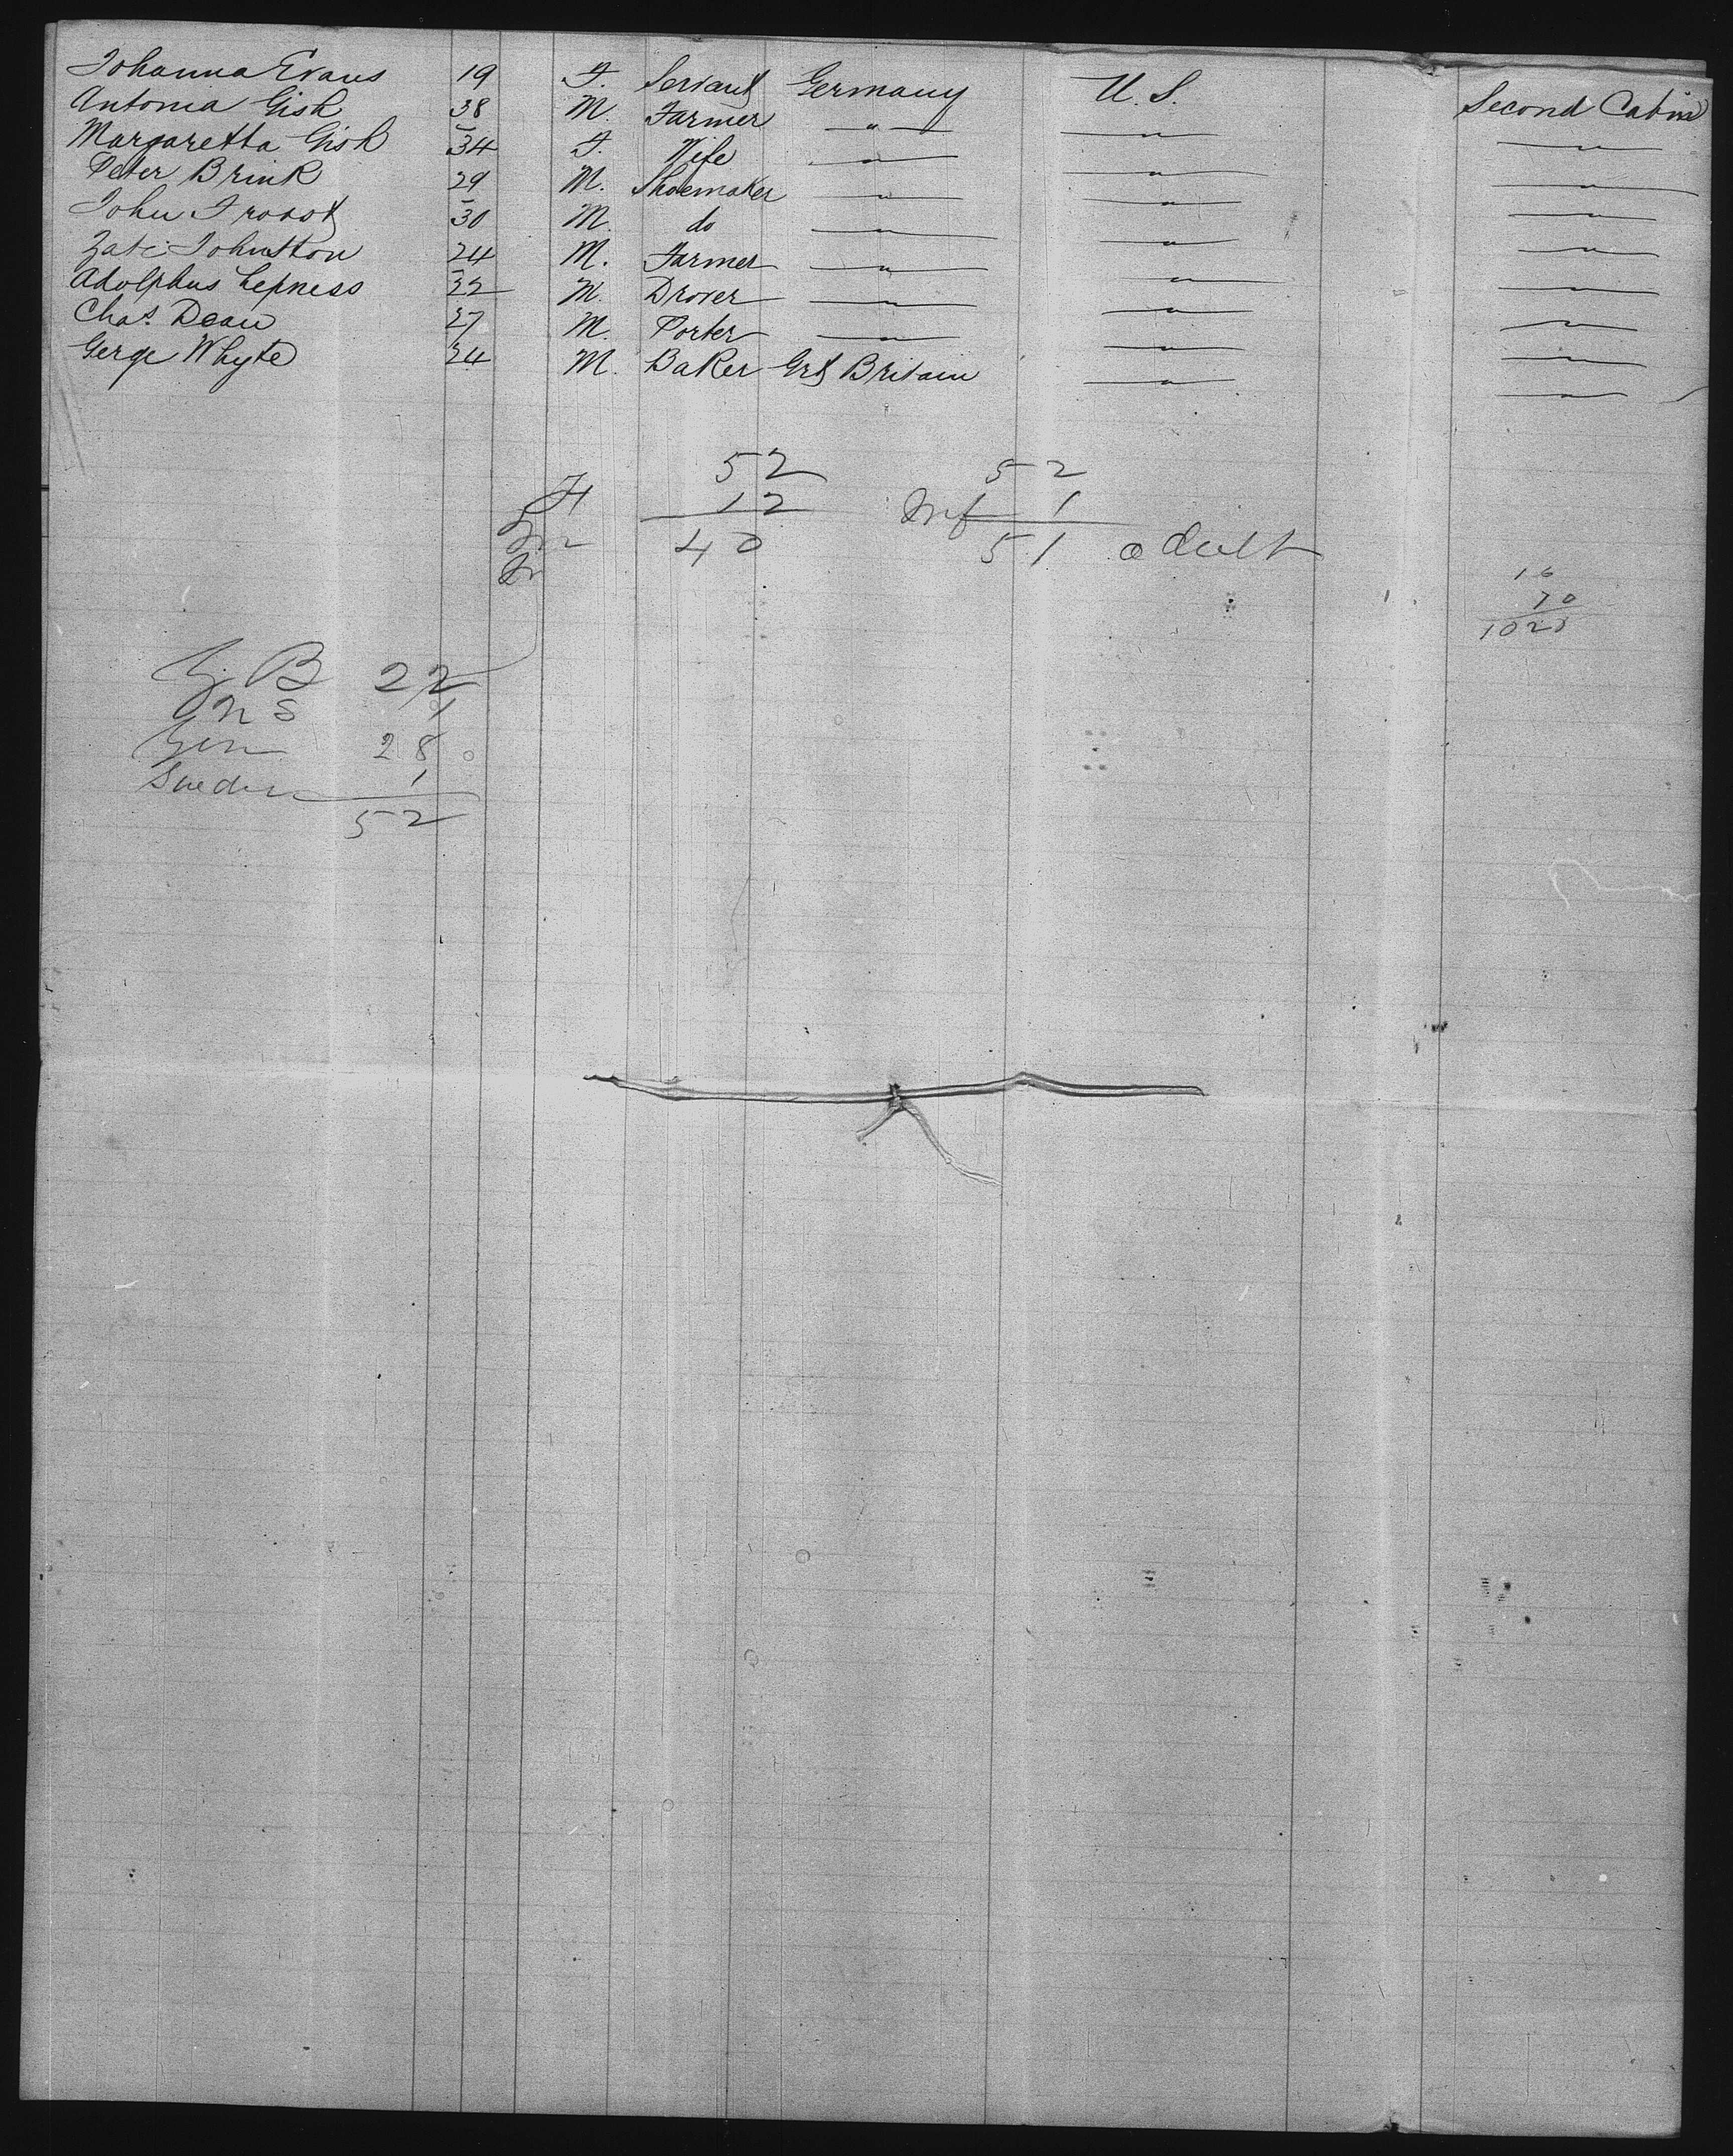 Johanna Evans 19 F. Servant Germany U.S. Second Cabin
Antonia Gish 38 M. Farmer " " "
Margaretta Gish 34 F. Wife " " "
Peter Brink 29 M. Shoemaker " " "
John Froost 30 M. do " " "
Johnston 24 M. Farmer " " "
Adolphus Lepness 32 M. Drover " " "
Chas. Dean 27 M. Porter " " "
Gerge Whyte 24 M. Baker Grt Britain " "
52 52
F 12 Inf 1
40 51 adult
16
70
G. B 22
1
Ger 28
Sweden 1
52